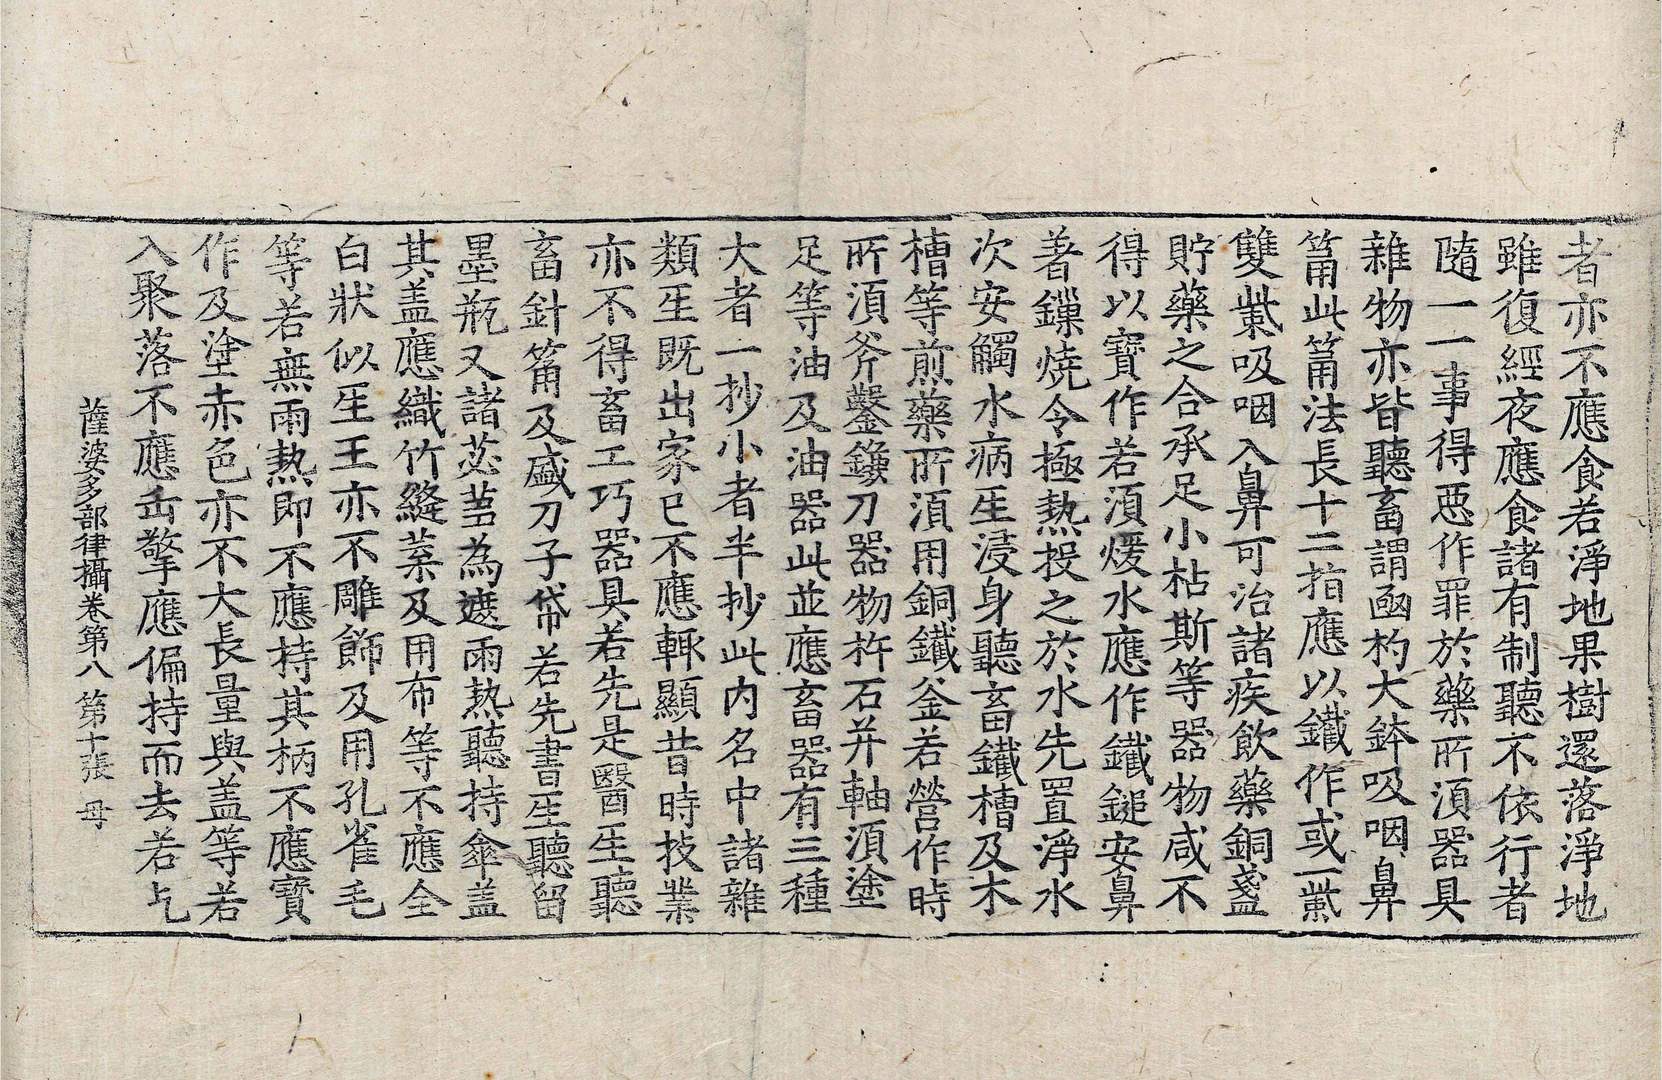 者亦不應食若淨地果樹還落淨地
雖復經夜應食諸有制聽不依行者
隨一一事得惡作罪於藥所湏器具
雜物亦皆聽畜謂凾杓大鉢吸咽鼻
筩此筩法長十二指應以鐵作或一㭰
雙㭰吸咽入鼻可治諸疾飲藥銅盞
貯藥之合承足小枯斯等器物咸不
得以寶作若湏煖水應作鐵鎚安鼻
著鏁燒令極熱投之於水先置淨水
次安觸水病生浸身聽畜鐵槽及木
槽等煎藥所湏用銅鐵釜若營作時
所湏斧鑿鐝刀器物杵石并軸湏塗
足等油及油器此並應畜器有三種
大者一抄小者半抄此内名中諸雜
類生旣出家已不應輙顯昔時技業
亦不得畜工巧器具若先是醫生聽
畜針筩及盛刀子帒若先書生聽留
墨瓶又諸苾蒭為遮雨熱聽持傘盖
其盖應織竹縫葉及用布等不應全
白狀似生王亦不雕飾及用孔雀毛
等若無雨熱即不應持其柄不應寶
作及塗赤色亦不大長量與盖等若
入聚落不應缶擎應偏持而去若乞
薩婆多部律攝卷第八 第十張 母